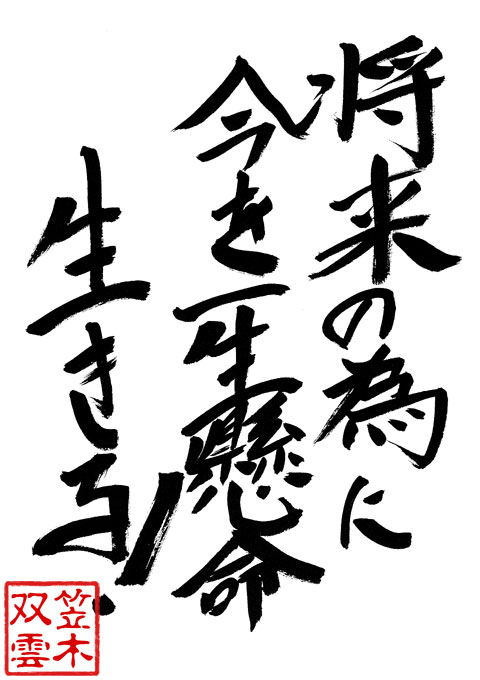 将来の為に
今を一生懸命
生きる!
笠木
双雲